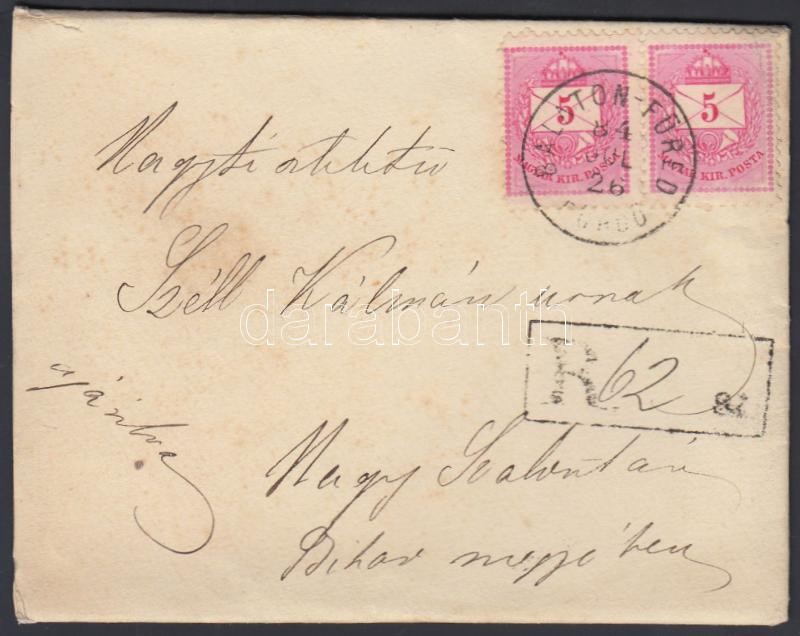 5 5
MAGYAR KIR. POSTA MAGYAR KIR. POSTA
BALATON-FÜRED
84
JUL
26
FÜRDŐ
Nagytiszteletü
Széll Kálmán urnak
darabanth
R 62
ajánlva
Nagy Szalontán
Bihar megyében